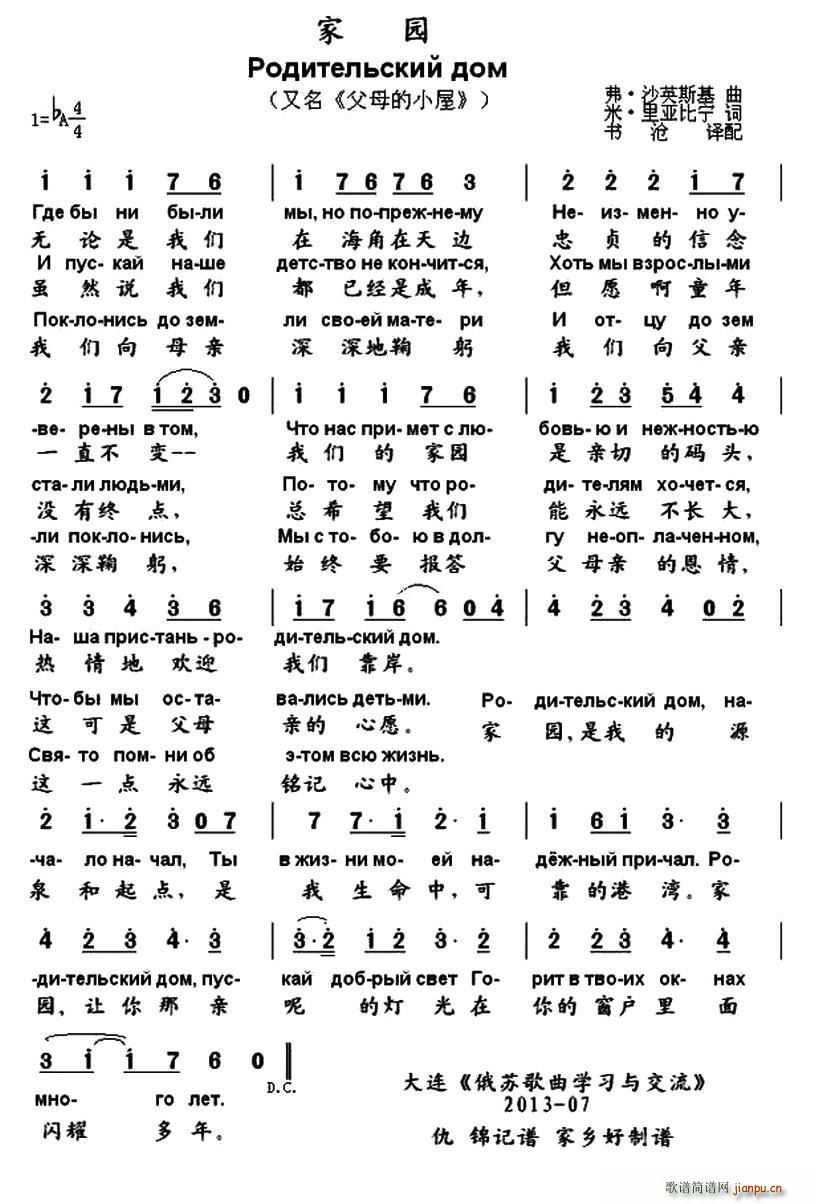 家 园
Родительский дом
（又名《父母的小屋》）
弗·沙英斯基 曲
1=♭A 4/4
米·里亚比宁 词
书 沧 译配
i i i 7 6 | i 7 6 7 6 3 | 2 2 2 i 7 |
Где бы ни бы-ли мы, но по-преж-не-му Не- из- мен- но у-
无 论 是 我 们 在 海 角 在 天 边 忠 贞 的 信 念
И пус-кай на-ше детс-тво не кон-чит-ся, Хоть мы взрос-лы-ми
虽 然 说 我 们 都 已经 是 成 年， 但 愿 啊 童 年
Пок-ло-нись до зем- ли сво-ей ма-те- ри И от- цу до зем
我 们 向 母 亲 深 深地 鞠 躬 我 们 向 父 亲
2 i 7 i 2 3 0 | i i i 7 6 | i 2 3 5 4 4 |
-ве- ре-ны в том, Что нас при-мет с лю- бовь-ю и неж-ность-ю
一 直 不 变-- 我 们 的 家 园 是 亲 切 的 码 头，
ста-ли людь-ми, По- то- му что ро- ди- те-лям хо-чет-ся,
没 有 终 点， 总 希 望 我 们 能 永 远 不 长 大，
-ли пок-ло-нись, Мы с то- бо- ю в дол- гу не-оп- ла-чен-ном,
深 深 鞠 躬， 始 终 要 报 答 父 母 亲 的 恩 情，
3 3 4 3 6 | i 7 i 6 6 0 4 | 4 2 3 4 0 2 |
На- ша прис-тань - ро- ди-тель-ский дом.
热 情 地 欢 迎 我 们 靠 岸。
Что-бы мы ос-та- ва-лись деть-ми. Ро- ди-тельс-кий дом, на-
这 可 是 父 母 亲 的 心 愿。 家 园，是 我 的 源
Свя-то пом-ни об э-том всю жизнь.
这 一 点 永 远 铭 记 心 中。
2 i· 2 3 0 7 | 7 7· i 2· i | i 6 i 3· 3 |
-ча- ло на-чал, Ты в жиз-ни мо- ей на- дёж-ный при-чал. Ро-
泉 和 起 点，是 我 生 命 中，可 靠 的 港 湾。家
4 2 3 4· 3 | 3·2 i 2 3· 2 | 2 2 3 4· 4 |
-ди-тельский дом, пус- кай доб-рый свет Го- рит в тво-их ок- нах
园，让 你 那 亲 昵 的 灯 光 在 你 的 窗 户 里 面
3 i i 7 6 0 ‖
D.C.
мно- го лет.
闪耀 多 年。
大连《俄苏歌曲学习与交流》
2013-07
仇 锦记谱 家乡好制谱
歌谱简谱网
jianpu.cn